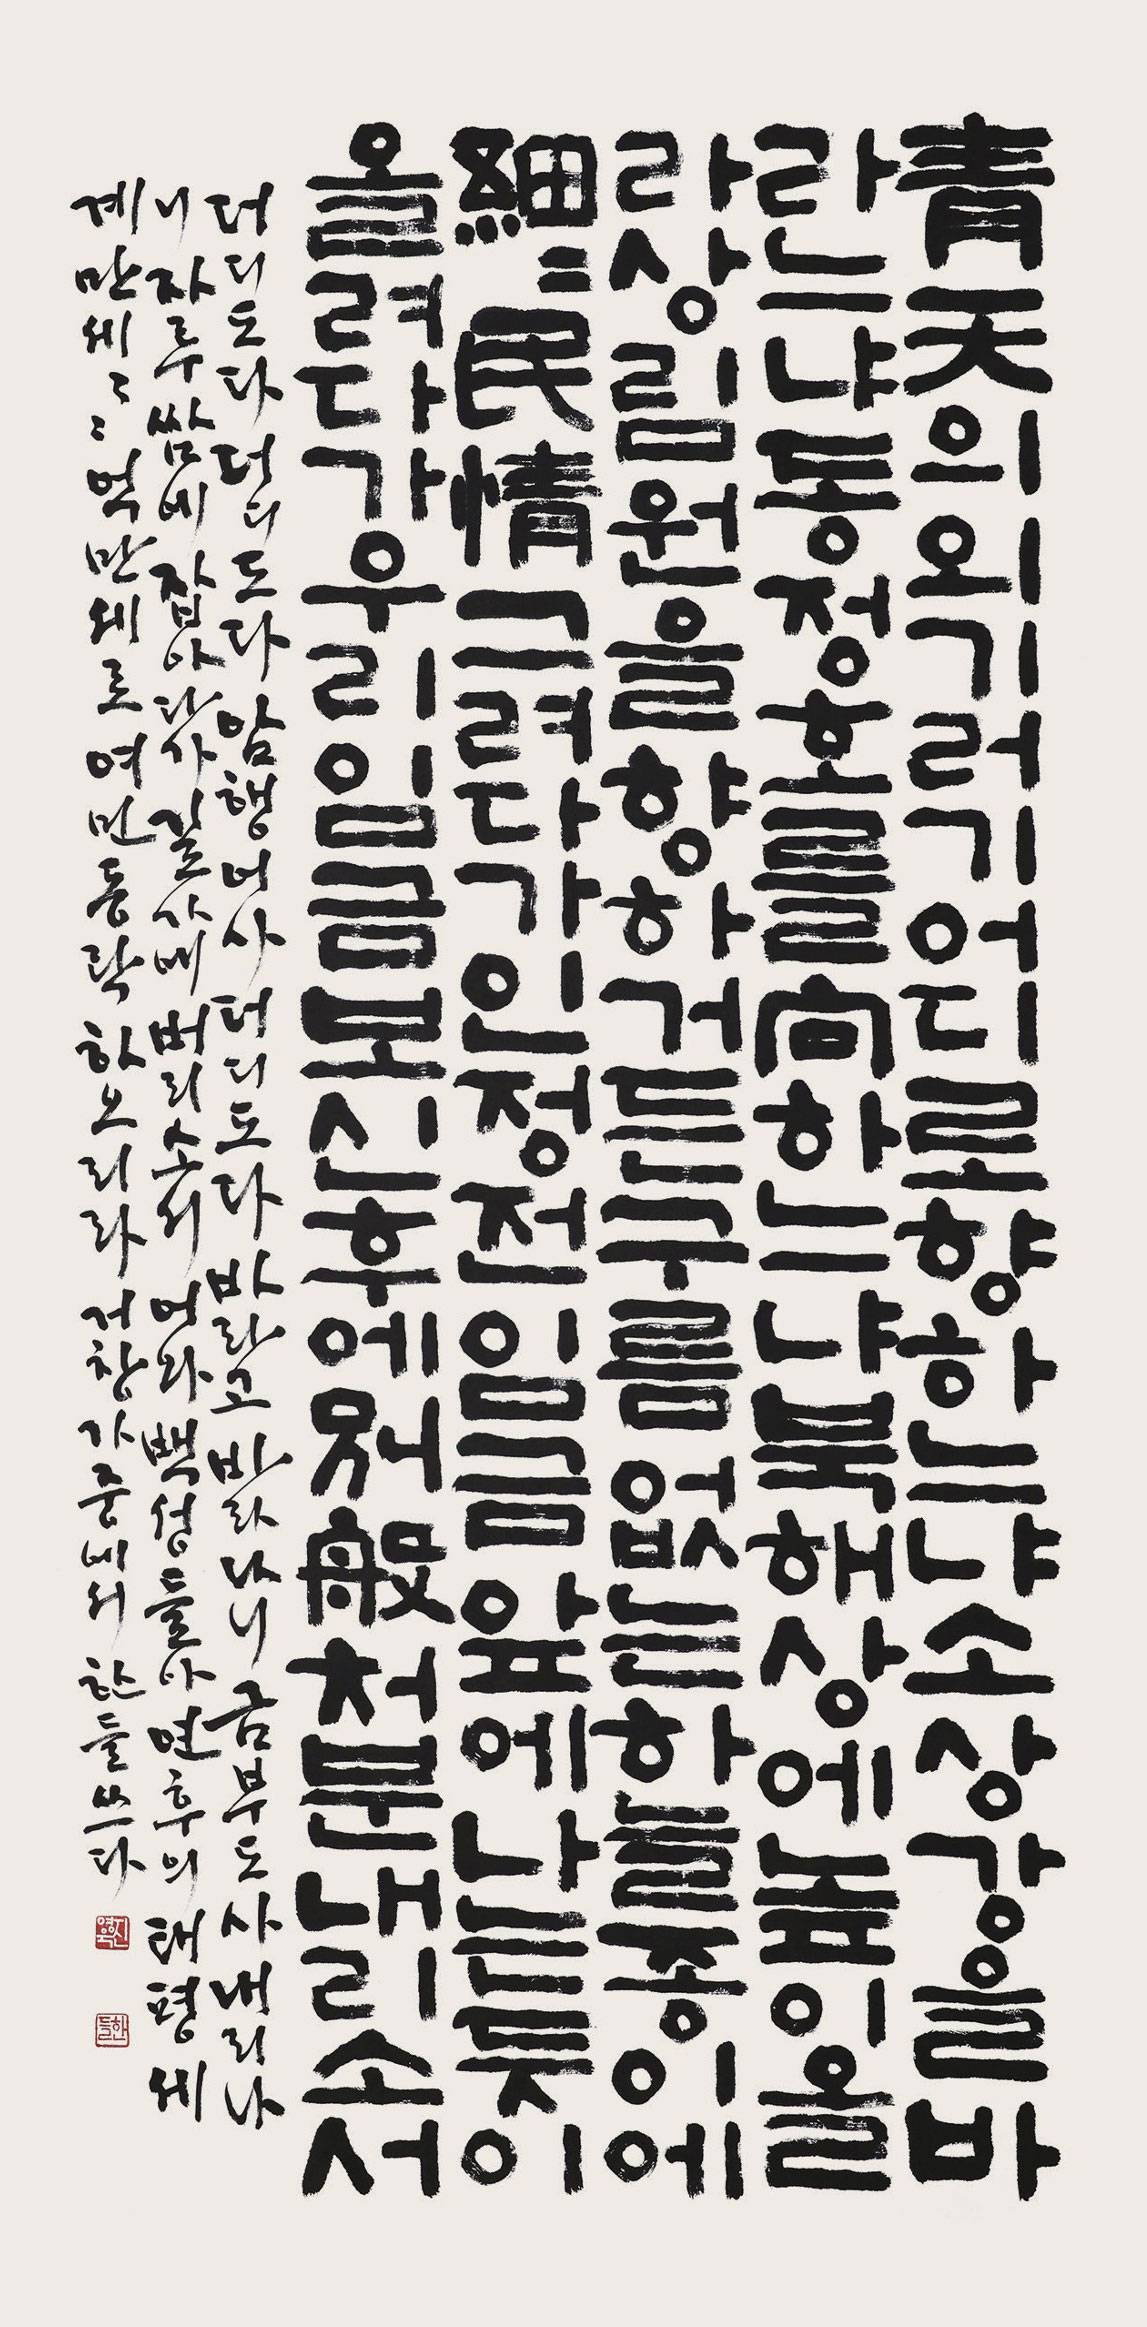 靑天의외기러기어디로향하느냐소상강을바
라느냐동정호를向하느냐북해상에높이올
라상림원을향하거든구름없는하늘종이에
細〻民情그려다가인정전임금앞에나는듯이
올려다가우리임금보신후에別般처분내리소서
더디도다 더디도다 암행어사 더디도다 바라고 바라나니 금부도사 내리나
니 자루쌈베 잡아다가 길가에 버리소서 어와 백성들아 연후의 태평세
계 만세〻〻 억만세로 여민동락 하오리라 거창가중에서 한들 쓰다
한들